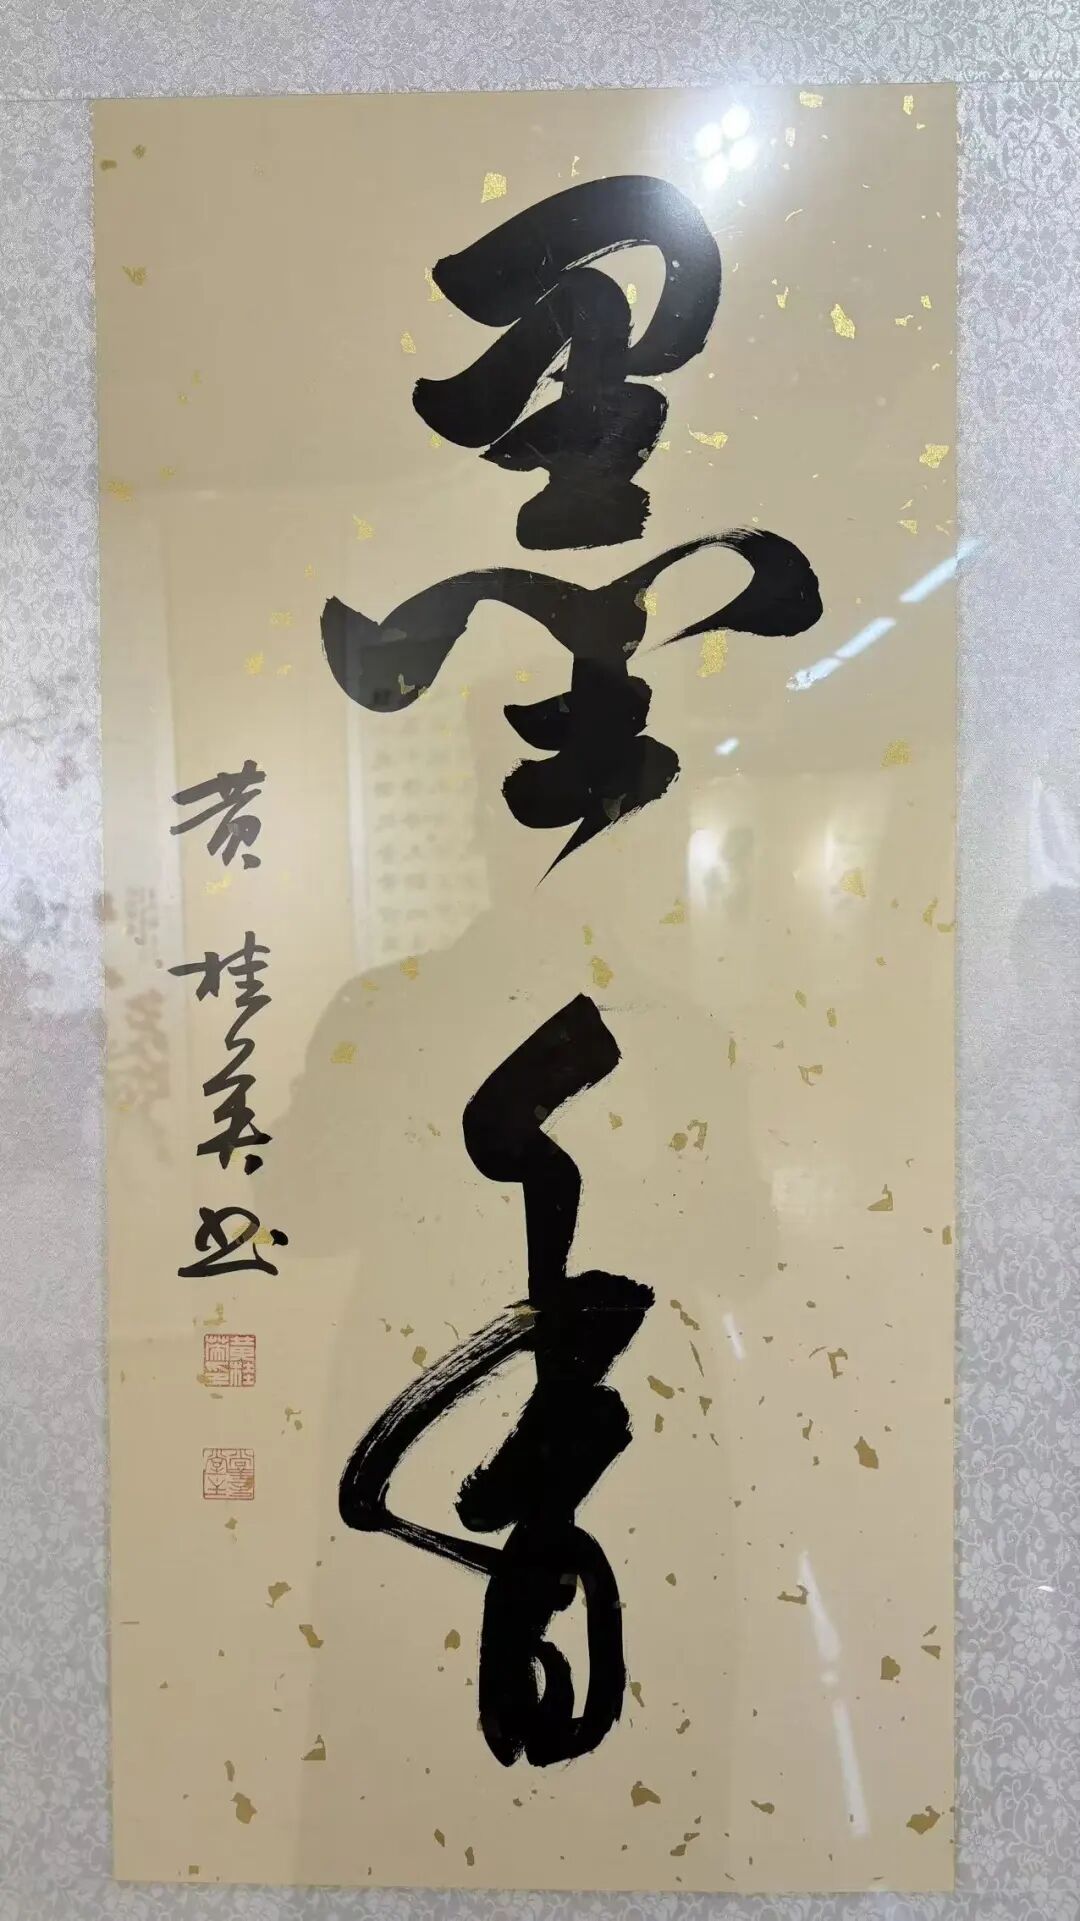 墨香
黄桂英书